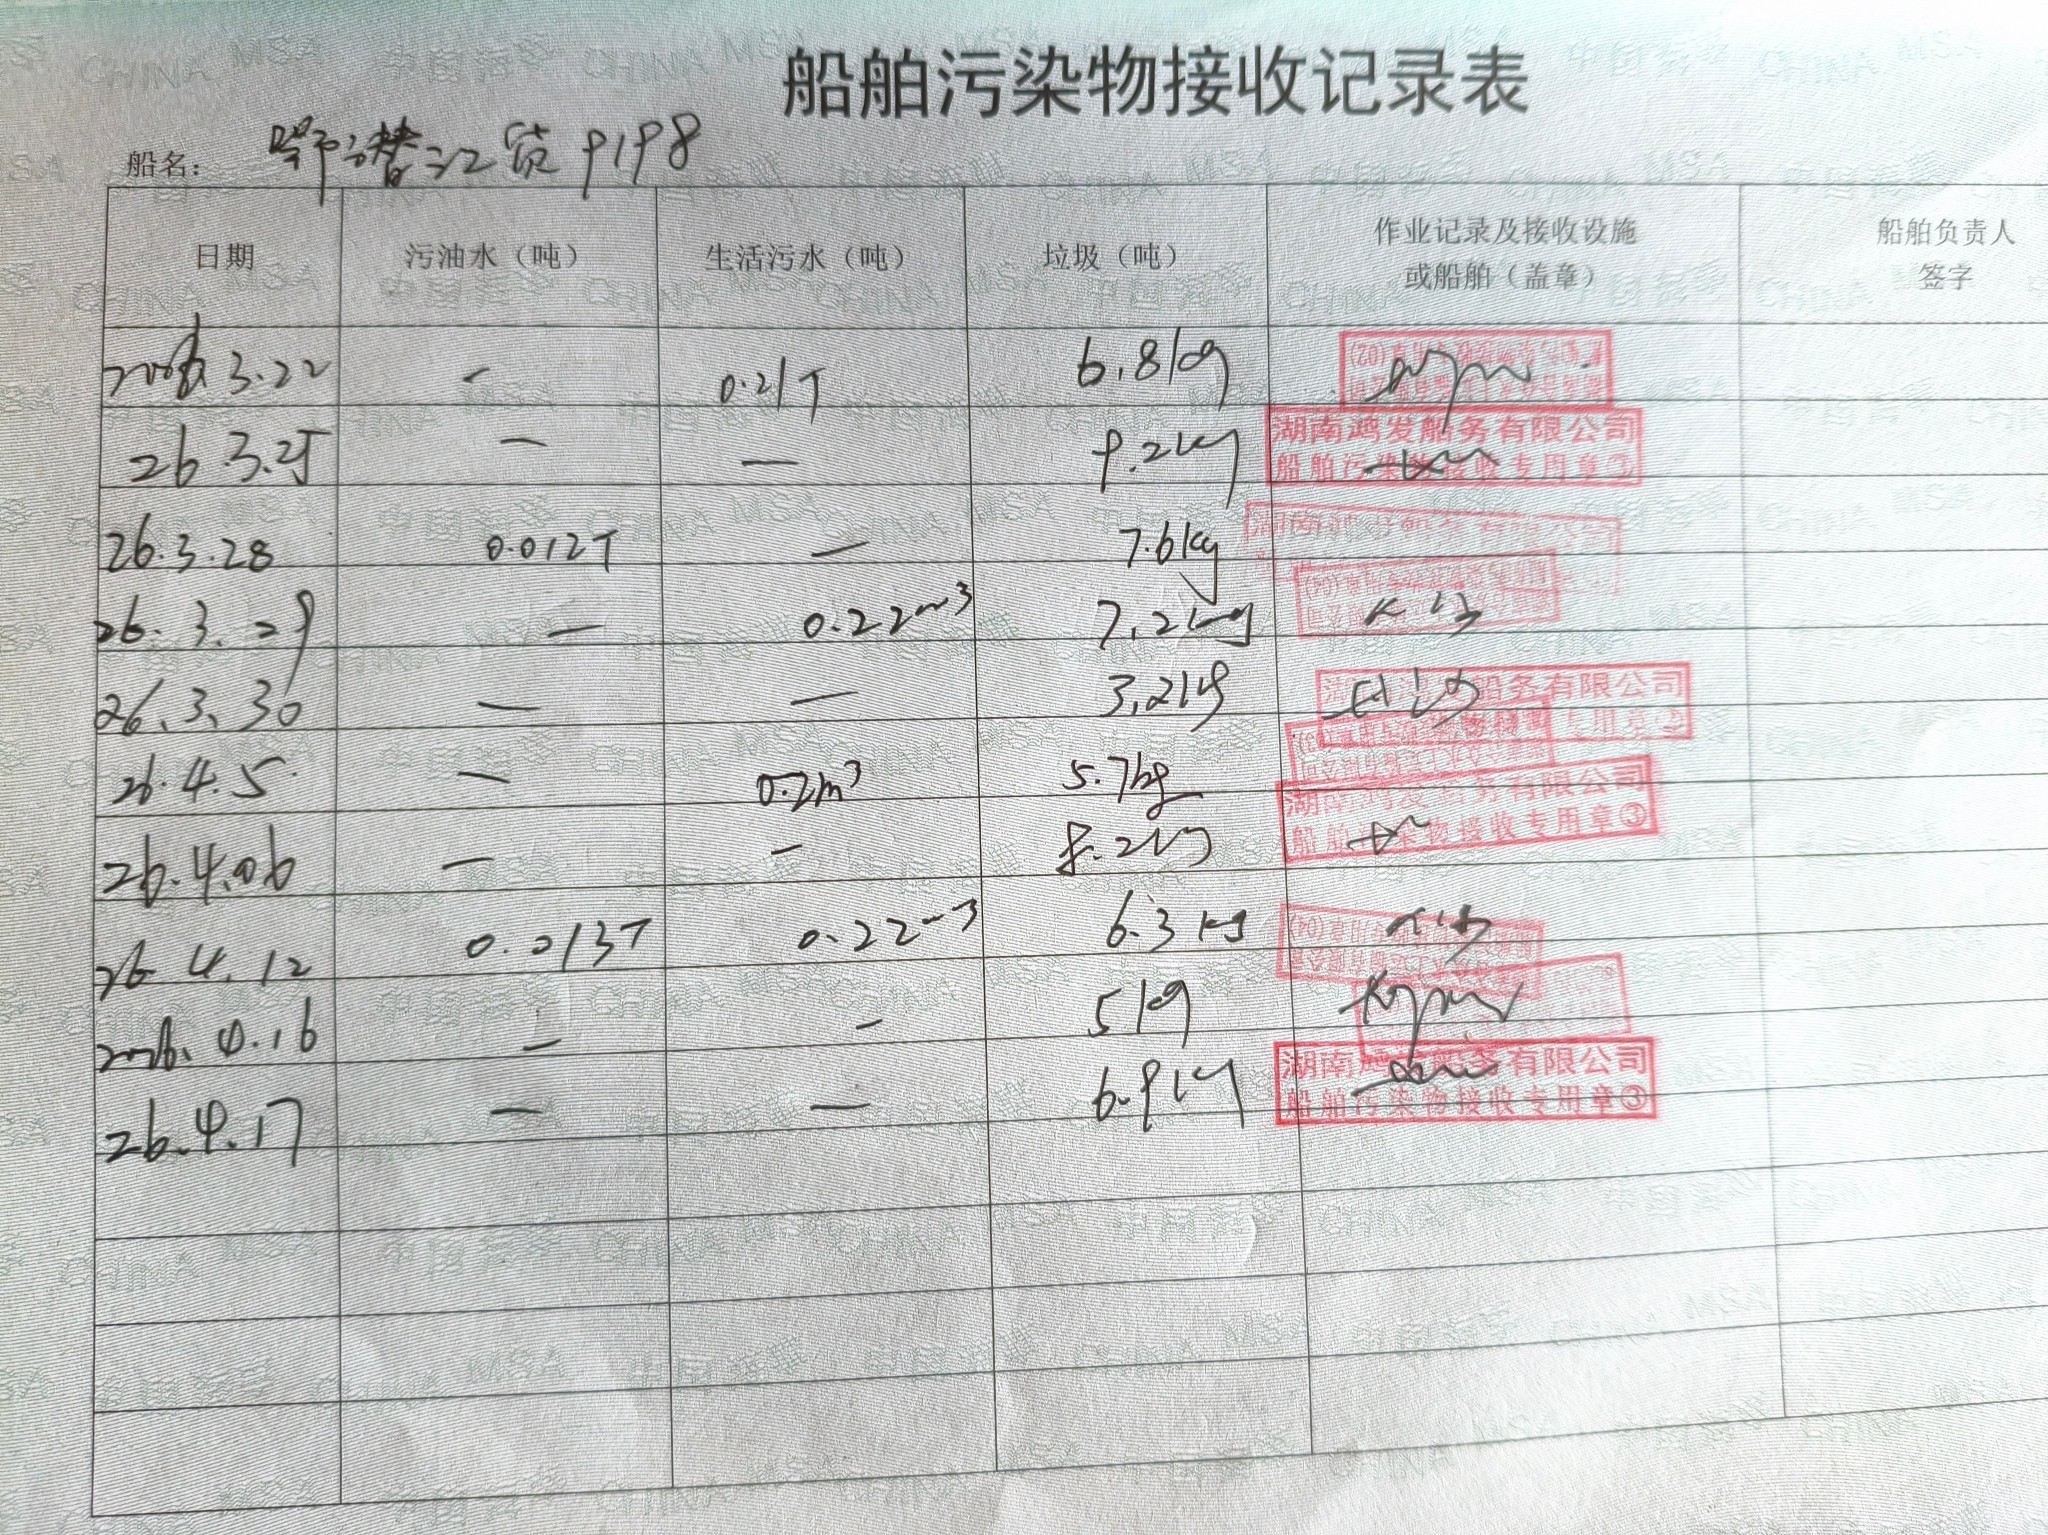 船舶污染物接收记录表
船名： 鄂潜江货9198
日期 污油水（吨） 生活污水（吨） 垃圾（吨） 作业记录及接收设施或船舶（盖章） 船舶负责人签字
2026.3.22 — 0.21T 6.8kg
26.3.25 — — 9.2kg 湖南鸿发船务有限公司 船舶污染物接收专用章①
26.3.28 0.012T — 7.6kg
26.3.29 — 0.22m³ 7.2kg
26.3.30 — — 3.2kg 船务有限公司 专用章②
26.4.5 — 0.2m³ 5.7kg
26.4.06 — — 8.2kg 湖南鸿发船务有限公司 船舶污染物接收专用章③
26.4.12 0.013T 0.22m³ 6.3kg
2026.4.16 — — 5kg
26.4.17 — — 6.9kg 湖南鸿发船务有限公司 船舶污染物接收专用章③